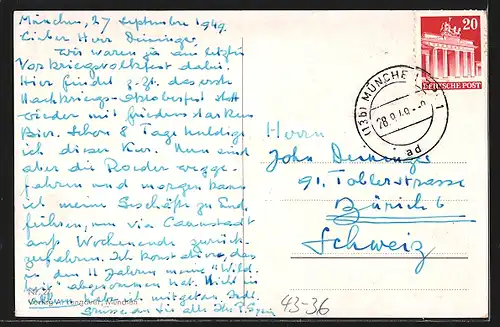 München, 27 September 1949.
Lieber Herr Denninger,
wir waren ja am letzten
Vorkriegsvolksfest dabei.
Hier findet z.Zt. das erste
Nachkriegs-Oktoberfest statt
wieder mit friedensstarken
Bier. Schon 8 Tage huldige
ich dieser Kur. Nun sind
aber die Roeder wegge-
fahren und morgen kann
ich meine Geschäfte zu End
führen, um via Cannstadt
aufs Wochenende zurück-
zufahren. Ich konstatiere, das
in den 11 Jahren meine "Wild-
heit" abgenommen hat. Nicht in
allem habe ich mitgetan. Indes
grüsse an Sie alles Ihr
Verlag Hannover, München
20
DEUTSCHE POST
(13b) MÜNCHEN 1
28.9.49
ad
Herrn
John Denninger
91, Toblerstrasse
Zürich 6
Schweiz
43-36